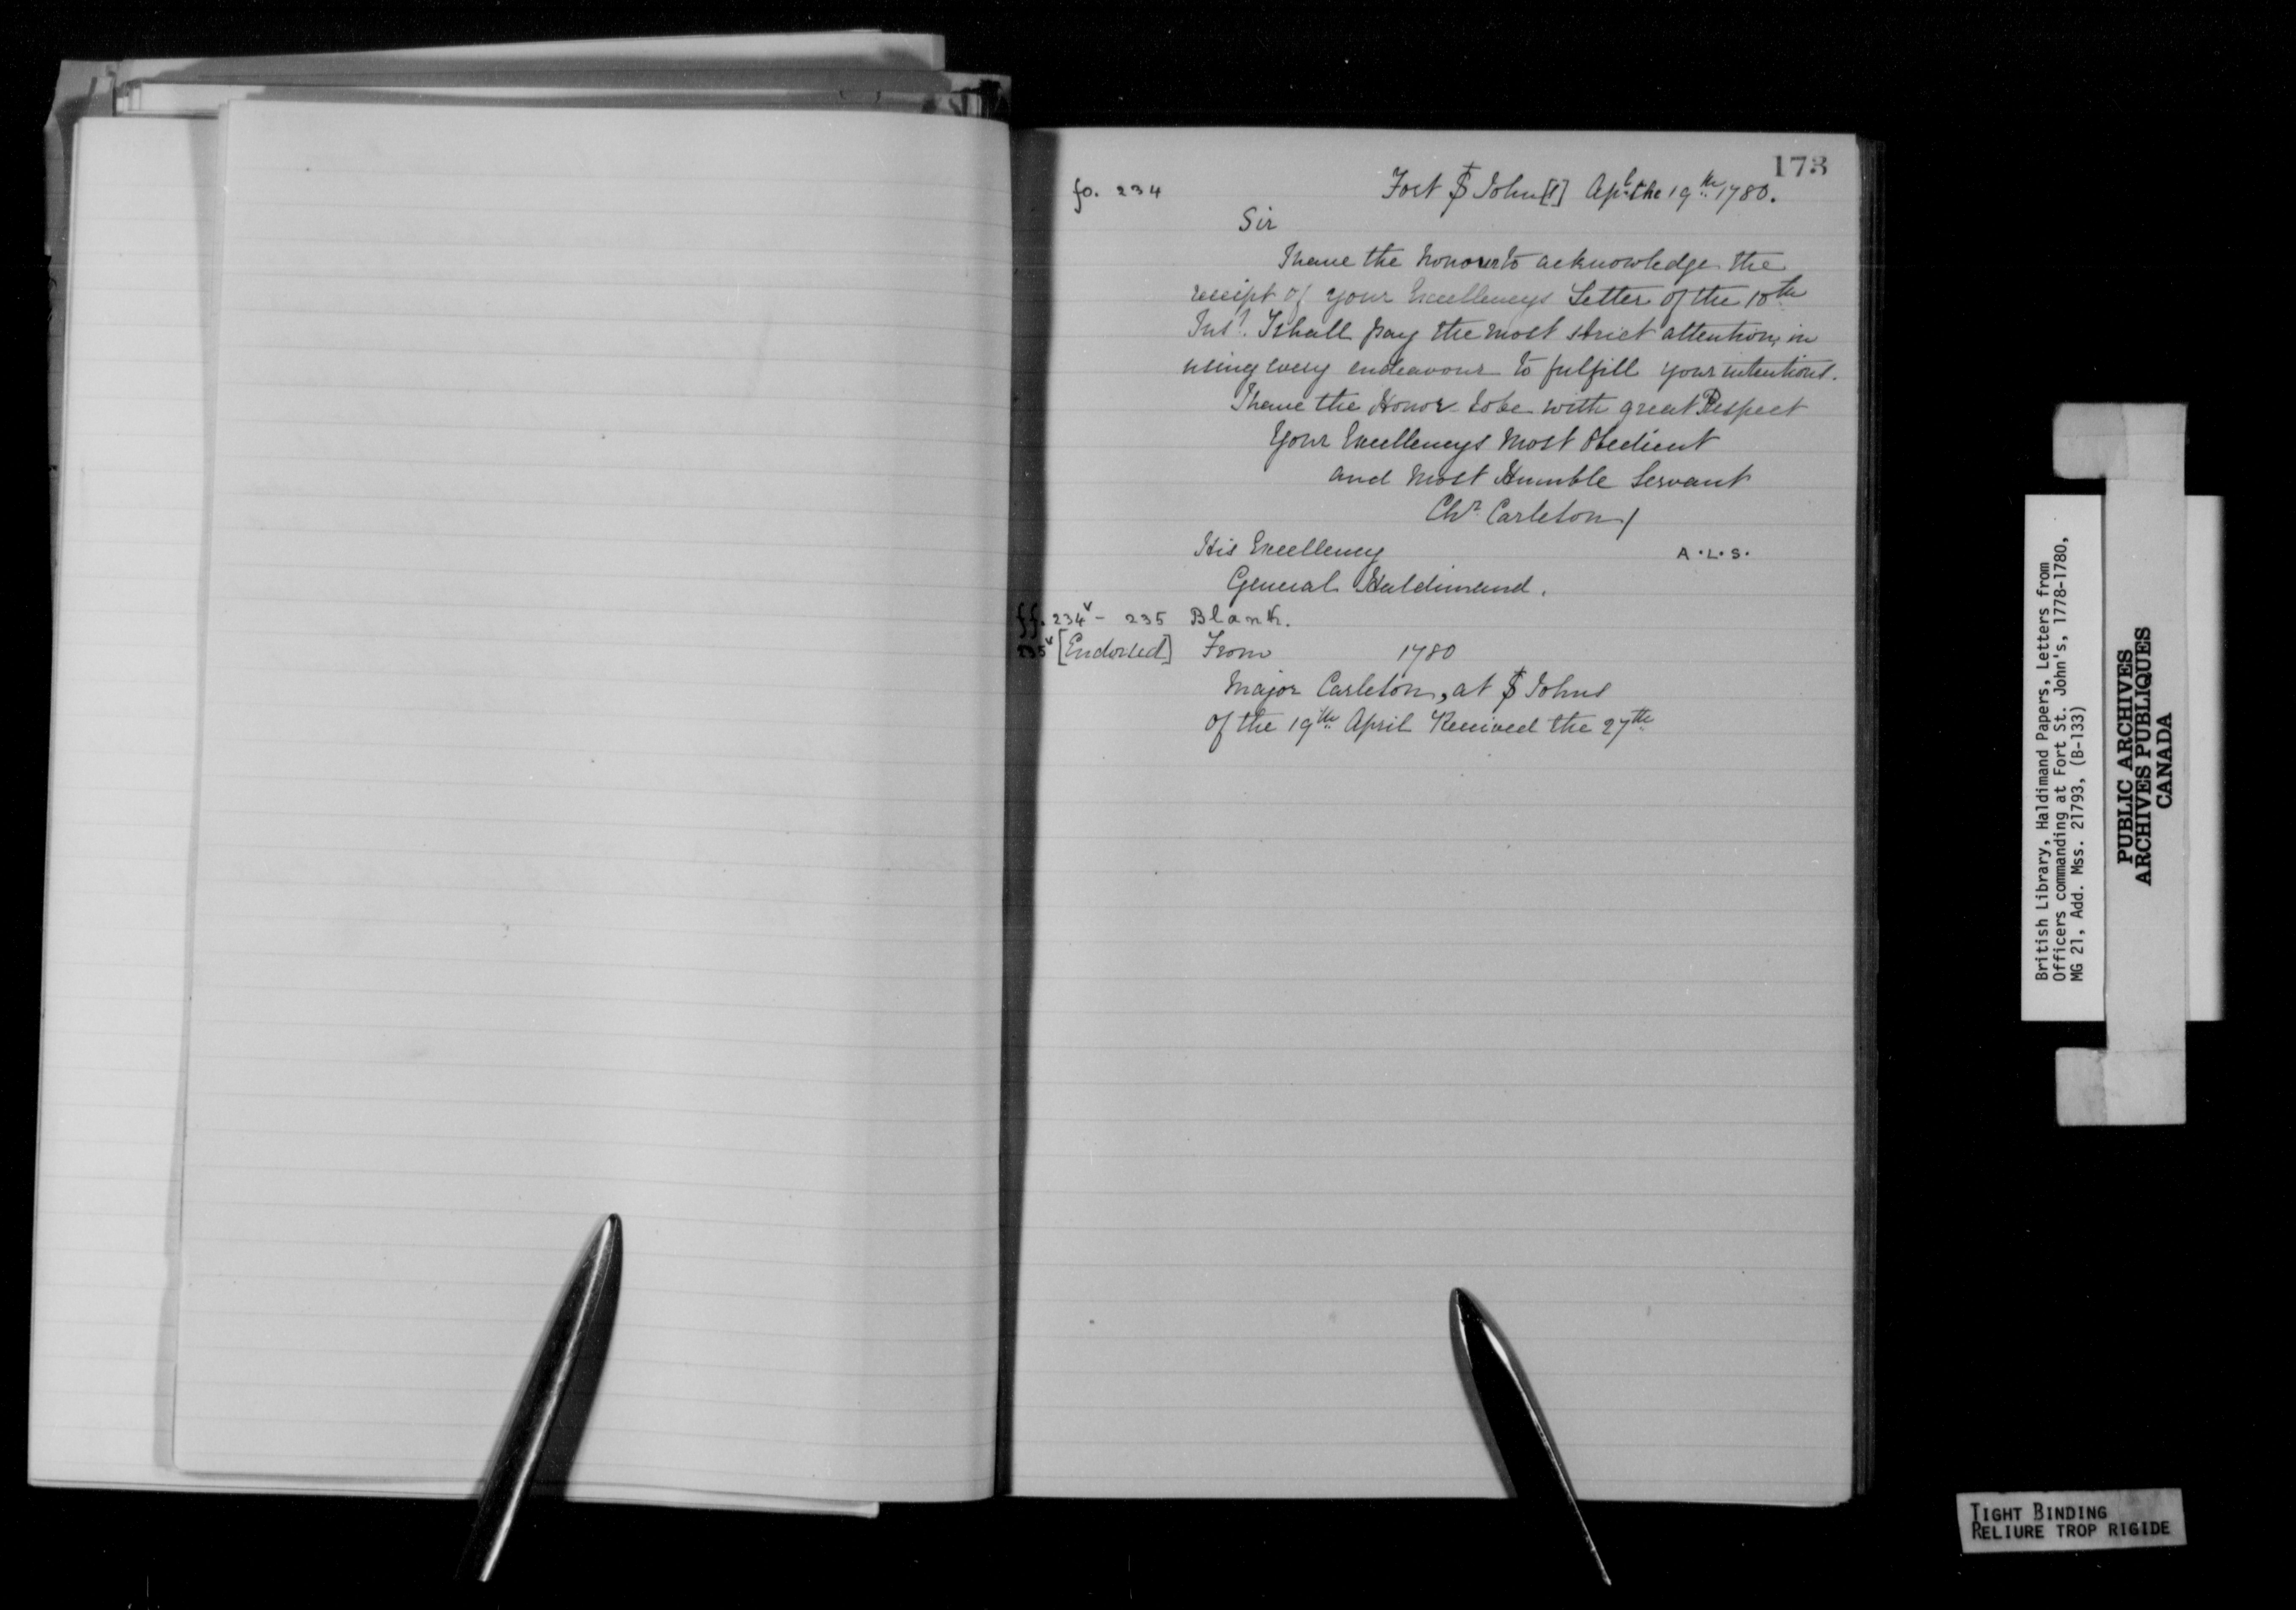 173
fo. 234 Fort St John[s] Apl the 19th 1780.
Sir
I have the honour to acknowledge the
receipt of your Excellencys Letter of the 10th
Inst. I shall pay the most strict attention, in
using every endeavour to fulfill your intentions.
I have the Honor to be with great Respect
Your Excellencys Most Obedient
and Most Humble Servant
Chr. Carleton /
His Excellency A.L.S.
General Haldimand.
ff. 234v - 235 Blank.
235v [Endorsed] From 1780
Major Carleton, at St Johns
of the 19th April Received the 27th
British Library, Haldimand Papers, Letters from
Officers commanding at Fort St. John's, 1778-1780,
MG 21, Add. Mss. 21793, (B-133)
PUBLIC ARCHIVES
ARCHIVES PUBLIQUES
CANADA
TIGHT BINDING
RELIURE TROP RIGIDE